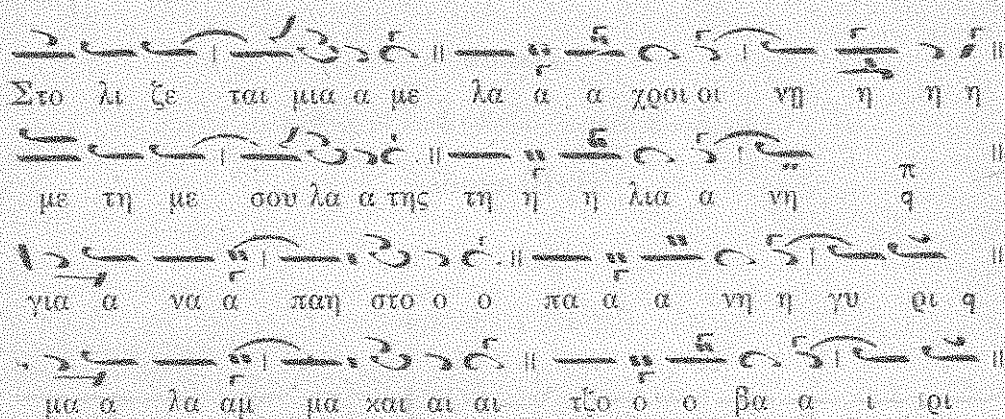 Στο λι ζε ται μια α με λα α α χροι οι νη η η η
με τη με σου λα α της τη η η λια α νη π q
για α να α παη στο ο ο πα α α νη η γυ ρι q
μα α λα αμ μα και αι αι τζο ο ο βα α ι ρι